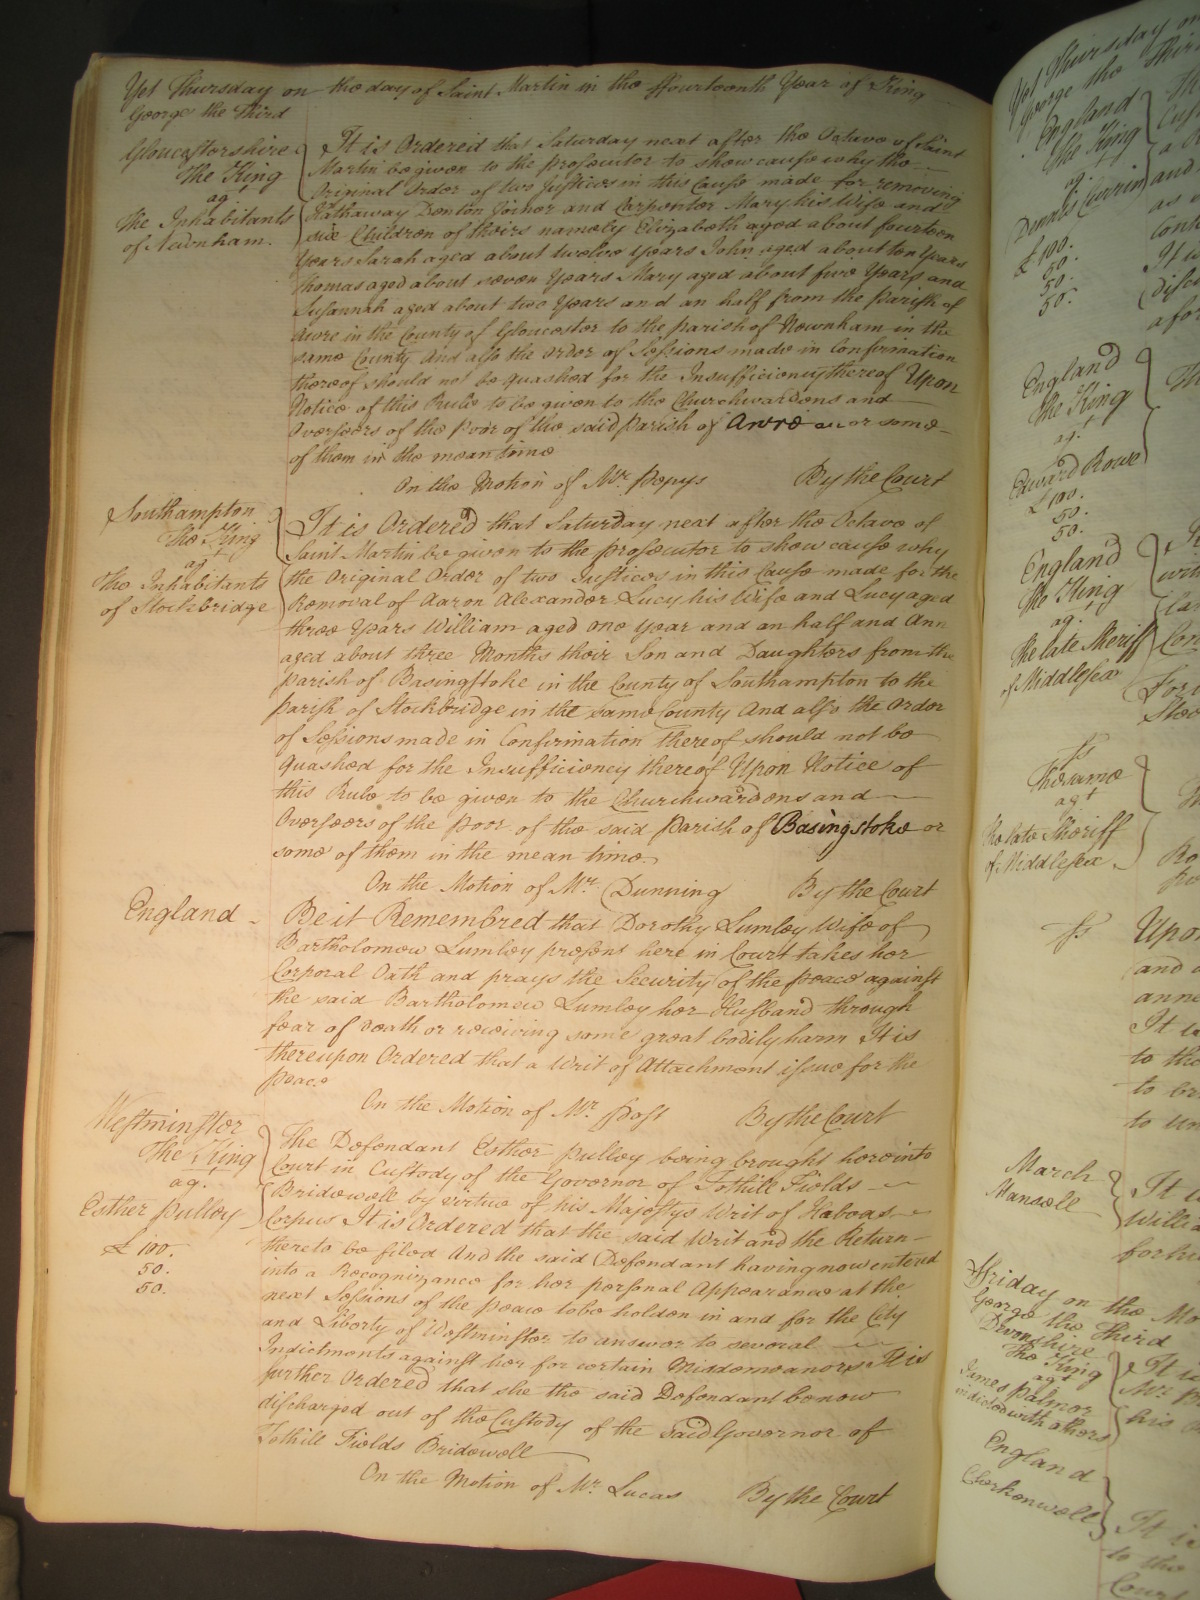 Yet Thursday on the day of Saint Martin in the ffourteenth Year of King
George the Third
Gloucestershire
The King
ag.t
the Inhabitants
of Newnham.
It is Ordered that Saturday next after the Octave of Saint
Martin be given to the prosecutor to shew cause why the
Original Order of two Justices in this Cause made for removing
Hathaway Denton Joiner and Carpenter Mary his Wife and
six Children of theirs namely Elizabeth aged about fourteen
Years Sarah aged about twelve Years John aged about ten Years
Thomas aged about seven Years Mary aged about five Years and
Susannah aged about two Years and an half from the parish of
Awre in the County of Gloucester to the parish of Newnham in the
same County And also the Order of Sessions made in Confirmation
thereof should not be quashed for the Insufficiency thereof Upon
Notice of this Rule to be given to the Churchwardens and
Overseers of the Poor of the said parish of Awre or some
of them in the mean time
On the Motion of Mr. Pepys By the Court
Southampton
The King
ag.t
the Inhabitants
of Stockbridge
It is Ordered that Saturday next after the Octave of
Saint Martin be given to the prosecutor to shew cause why
the Original Order of two Justices in this Cause made for the
Removal of Aaron Alexander Lucy his Wife and Lucy aged
three Years William aged one Year and an half and Ann
aged about three Months their Son and Daughters from the
parish of Basingstoke in the County of Southampton to the
parish of Stockbridge in the same County And also the Order
of Sessions made in Confirmation thereof should not be
quashed for the Insufficiency thereof Upon Notice of
this Rule to be given to the Churchwardens and
Overseers of the poor of the said parish of Basingstoke or
some of them in the mean time.
On the Motion of Mr. Dunning By the Court
England
Be it Remembred that Dorothy Lumley Wife of
Bartholomew Lumley present here in Court takes her
Corporal Oath and prays the Security of the peace against
the said Bartholomew Lumley her Husband through
fear of death or receiving some great bodily harm It is
thereupon Ordered that a Writ of Attachment issue for the
peace
On the Motion of Mr. Post By the Court
Westminster
The King
ag.
Esther Pulley
£100.
50.
50.
The Defendant Esther Pulley being brought here into
Court in Custody of the Governor of Tothill Fields
Bridewell by virtue of his Majestys Writ of Habeas
Corpus It is Ordered that the said Writ and the Return
thereto be filed And the said Defendant having now entered
into a Recognizance for her personal Appearance at the
next Sessions of the peace to be holden in and for the City
and Liberty of Westminster to answer to several
Indictments against her for certain Misdemeanors It is
further Ordered that she the said Defendant be now
discharged out of the Custody of the said Governor of
Tothill Fields Bridewell
On the Motion of Mr. Lucas By the Court
Yet Thursday on
George the Third
England
The King
ag.t
Dennis Currin
£100.
50.
50.
50.
and
as
It
afor
England
The King
ag.t
Edward Rowe
£100.
50.
50.
England
The King
ag.t
the late Sheriff
of Middlesex
with
For
ss
The same
ag.t
the late Sheriff
of Middlesex
ss
Upo
and
anne
It
to the
to
to
March
Mansell
It
Willia
for
Ffriday on the Mo
George the Third
Devonshire
The King
ag.t
James Palmer
indicted with others
It is
Mr
his
England
Clerkenwell
It is
to the
Court